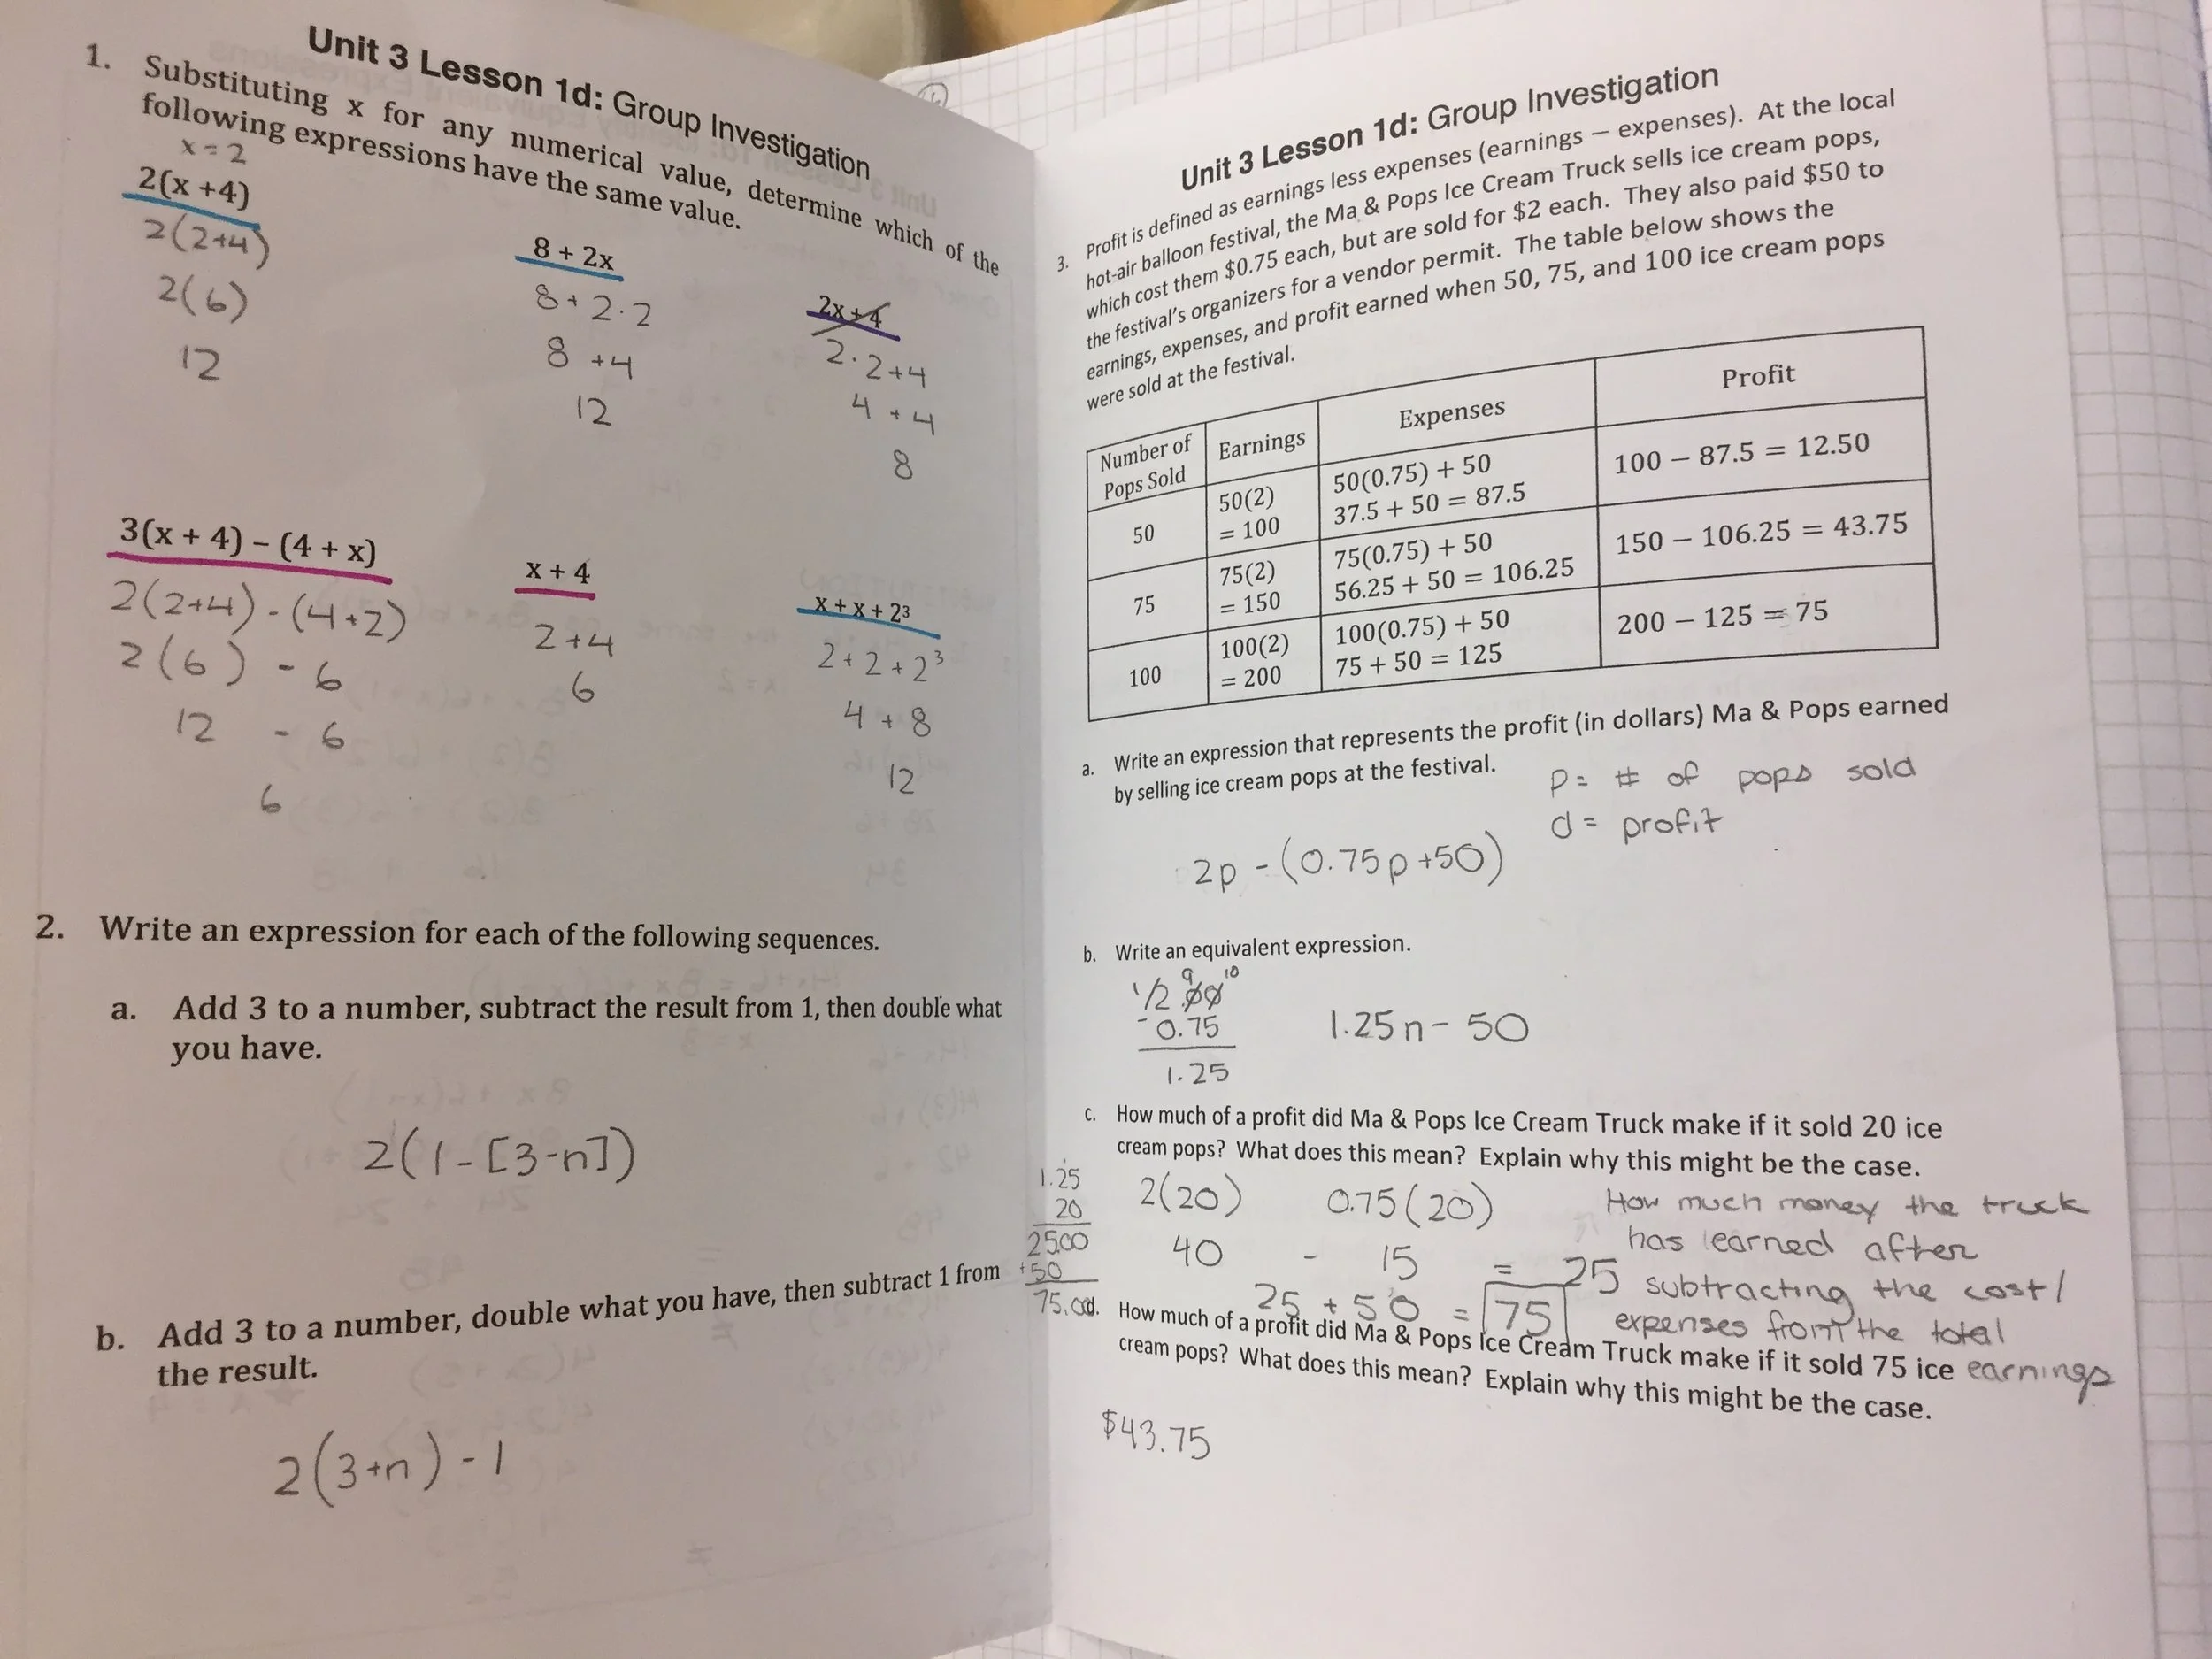 Unit 3 Lesson 1d: Group Investigation
1. Substituting x for any numerical value, determine which of the
following expressions have the same value.
x = 2
2(x +4)
2(2+4)
2(6)
12
8 + 2x
8 + 2·2
8 +4
12
2x + 4
2·2+4
4 + 4
8
3(x + 4) – (4 + x)
2(2+4) - (4+2)
2(6) - 6
12 - 6
6
x + 4
2+4
6
x + x + 2³
2+2+2³
4 + 8
12
2. Write an expression for each of the following sequences.
a. Add 3 to a number, subtract the result from 1, then double what
you have.
2(1-[3-n])
b. Add 3 to a number, double what you have, then subtract 1 from
the result.
2(3+n) - 1
Unit 3 Lesson 1d: Group Investigation
3. Profit is defined as earnings less expenses (earnings – expenses). At the local
hot-air balloon festival, the Ma & Pops Ice Cream Truck sells ice cream pops,
which cost them $0.75 each, but are sold for $2 each. They also paid $50 to
the festival's organizers for a vendor permit. The table below shows the
earnings, expenses, and profit earned when 50, 75, and 100 ice cream pops
were sold at the festival.
Number of
Pops Sold
Earnings
Expenses
Profit
50
50(2)
= 100
50(0.75) + 50
37.5 + 50 = 87.5
100 – 87.5 = 12.50
75
75(2)
= 150
75(0.75) + 50
56.25 + 50 = 106.25
150 – 106.25 = 43.75
100
100(2)
= 200
100(0.75) + 50
75 + 50 = 125
200 – 125 = 75
a. Write an expression that represents the profit (in dollars) Ma & Pops earned
by selling ice cream pops at the festival.
p = # of pops sold
d = profit
2p - (0.75p +50)
b. Write an equivalent expression.
9 10
1/2.00
- 0.75
1.25
1.25n - 50
c. How much of a profit did Ma & Pops Ice Cream Truck make if it sold 20 ice
cream pops? What does this mean? Explain why this might be the case.
1.25
20
25.00
+50
75.00
2(20) 0.75(20)
40 - 15 = 25
25 + 50 = 75
How much money the truck
has learned after
subtracting the cost/
expenses from the total
earnings
d. How much of a profit did Ma & Pops Ice Cream Truck make if it sold 75 ice
cream pops? What does this mean? Explain why this might be the case.
$43.75